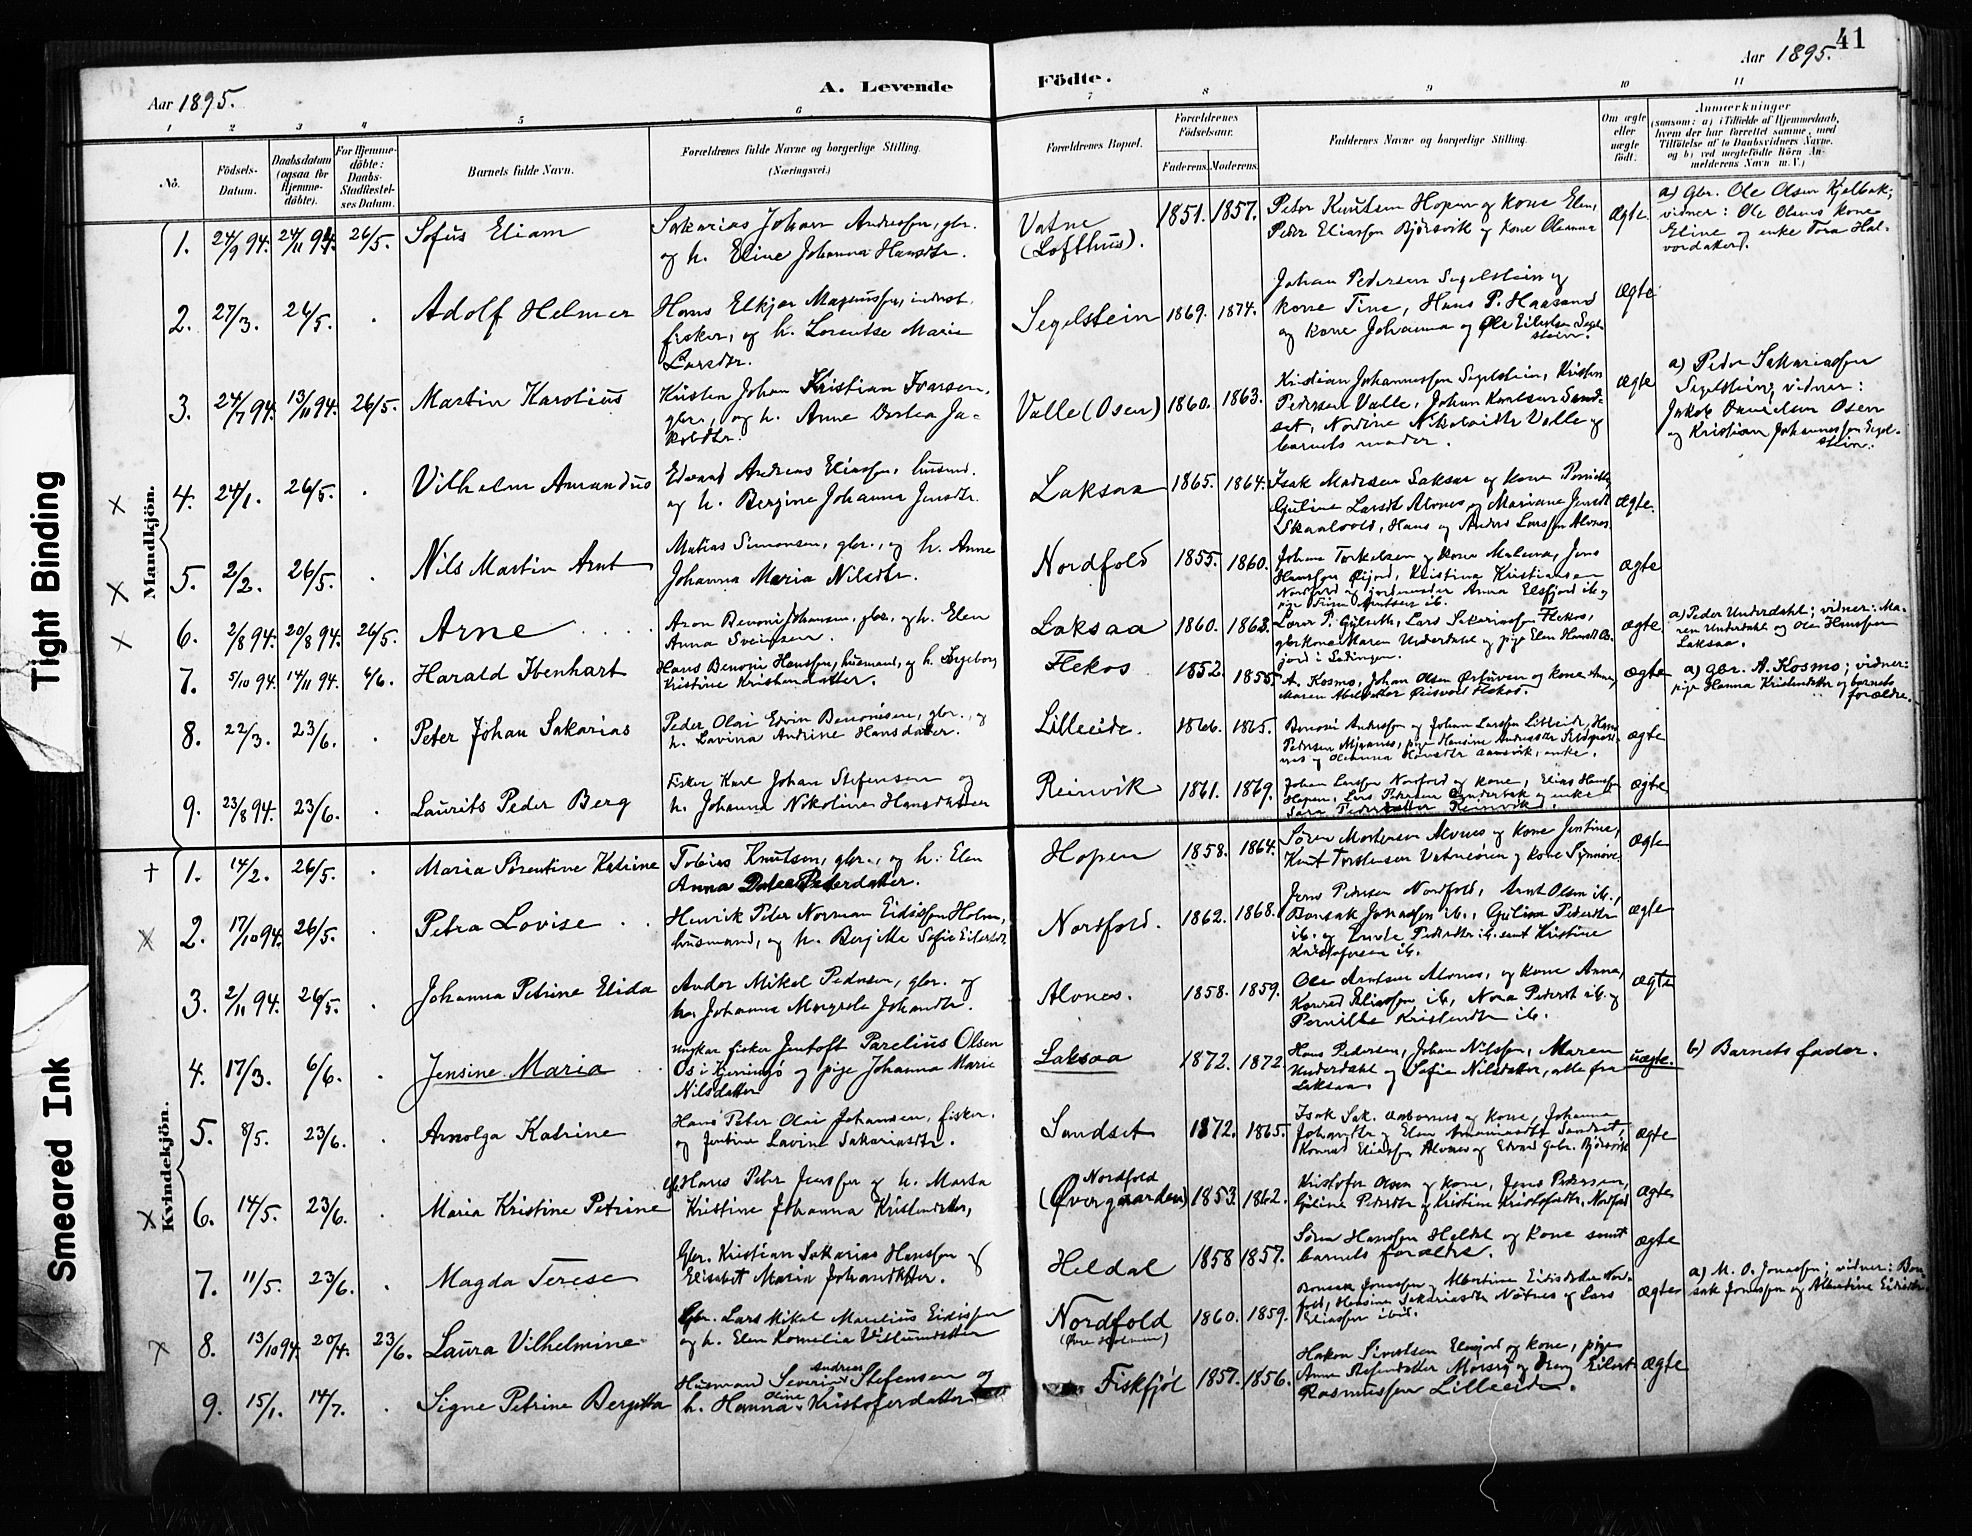 41
Aar 1895.
A. Levende
Födte.
Aar 1895.
1 2 3 4 5 6 7 8 9 10 11
Nö.
Födsels-
Datum.
Daabsdatum
(ogsaa for
Hjemme-
döbte).
For Hjemme-
döbte:
Daabs-
Stadfæstel-
ses Datum.
Barnets fulde Navn.
Forældrenes fulde Navne og borgerlige Stilling.
(Næringsvei.)
Forældrenes Bopæl.
Forældrenes
Födselsaar.
Faderens. Moderens.
Faddernes Navne og borgerlige Stilling.
Om ægte
eller
uægte
födt.
Anmærkninger
(saasom: a) i Tilfælde af Hjemmedaab,
hvem der har forrettet samme, med
Tilföielse af to Daabsvidners Navne,
og b) ved uægtefödte Börn An-
melderens Navn m. V.)
Mandkjön.
1. 24/9 94. 24/11 94. 26/5. Sofus Eliam
Sakarias Johan Andressen, gbr.
og h. Eline Johanna Hansdtr.
Vatne
(Lofthus).
1851. 1857.
Peter Knutsen Hopen og kone Elen,
Peder Eliassen Bjørsvik og kone Oleanna
Ægte
a) Gbr. Ole Olsen Kjelbak;
vidner: Ole Olsens kone
Eline og enke Tora Hal-
vordatter.
2. 27/3. 26/5. . Adolf Helmer
Hans Elkjær Magnussen, inderst
fisker, og h. Lorentse Marie
Larsdtr.
Segelstein 1869. 1874.
Johan Pedersen Segelstein og
kone Tine, Hans P. Haasand
og kone Johanna og Ole Eilertsen Segel-
stein.
Ægte
3. 24/7 94. 13/11 94. 26/5. Martin Karolius
Kristen Johan Kristian Ivarsen,
gbr., og h. Anne Dortea Ja-
kobdtr.
Valle (Osen) 1860. 1863.
Kristian Johannessen Segelstein, Kristen
Pedersen Valle, Johan Karlsen Sand-
set, Nordine Nikolaidtr Valle og
barnets moder.
Ægte
a) Peder Sakariassen
Segelstein; vidner:
Jakob Danielsen Osen
og Kristian Johannessen Segel-
stein.
4. 24/1. 26/5. . Vilhelm Amandus
Edvard Andreas Eliassen, husmd.
og h. Bergine Johanna Jensdtr.
Laksaa 1865. 1864.
Isak Madsen Laksaa og kone Pernille,
Guline Larsdt Alvnes og Mariane Jensdt
Skaalvold, Hans og Anders Larssen Alvnes
Ægte.
5. 2/2. 26/5. . Nils Martin Arnt
Matias Simonsen, gbr., og h. Anne
Johanna Maria Nilsdtr.
Nordfold 1855. 1860.
Johan Torkelsen og kone Malena, Jens
Hanssen Øijord, Kristina Kristiansen
Nordfold og jordemoder Anna Elsfjord ib. og
pige Trine Arntsen ib.
Ægte
6. 2/8 94. 20/8 94. 26/5. Arne
Aron Benoni Johansen, gbr., og h. Elen
Anna Sveinsen.
Laksaa 1860. 1863.
Lars Sakariassen Flekos,
gbr.kone Maren Underdahl og pige Elen
jord i Lødingen.
Ægte
a) Peder Underdahl; vidner: Ma-
ren Underdahl og Ole Hanssen
Laksaa.
7. 5/10 94. 14/11 94. 6/6. Harald Ibenhart
Hans Benoni Hanssen, husmand, og h. Ingeborg
Kristine Kristendatter.
Flekos 1852. 1855.
A. Kosmo, Johan Olsen Ørtuven og kone Anna,
Maren Abeldatter Øisvold Flekos.
Ægte
a) gbr. A. Kosmo; vidner:
pige Hanna Kristendatter og barnets
forældre.
8. 22/3. 23/6. . Peter Johan Sakarias
Peder Olai Edvin Benonisen, gbr., og
h. Lavina Andrine Hansdatter.
Lilleeide. 1866. 1865.
Benoni Andressen og Johan Larssen Lilleeide, Hans
Pedersen Mjaanes, pige Hansine Andreasdtr
og Oleanna Hansdtr Aamsvik, enke.
Ægte
9. 23/8 94. 23/6. . Laurits Peder Berg
Fisker Karl Johan Stefensen og
h. Johanna Nikoline Hansdatter
Reinvik 1861. 1869.
Johan Larssen Nordfold og kone, Elias Hanss.
Hopen, Lars Petersen Sønderbak og enke
Sara Pedersdatter Reinvik.
Ægte
Kvindekjön.
1. 14/2. 26/5. . Maria Sørentine Katrine
Tobias Knutsen, gbr., og h. Elen
Anna Dotea Pedersdatter.
Hopen 1858. 1864.
Søren Mortensen Alvnes og kone Jentine,
Knut Torstensen Vatneøren og kone Synnøve
Ægte
2. 17/10 94. 26/5. . Petra Lovise
Henrik Peter Norman Eidissen Holm,
husmand, og h. Bergitte Sofie Eilertsdtr.
Nordfold. 1862. 1868.
Jens Pedersen Nordfold, Arnt Olsen ib.,
Bonsak Jonassen ib., Gulina Pedersdtr
ib. og Pedersdtr ib. samt Kristine
Kristofersen ib.
Ægte
3. 2/11 94. 26/5. . Johanna Petrine Elida
Andor Mikal Pedersen, gbr. og
h. Johanna Margrete Johansdtr.
Alvnes. 1858. 1859.
Ole Arntsen Alvnes, og kone Anna,
Konrad Eliassen ib., Nora Pedersdt ib. og
Pernille Kristendtr ib.
Ægte
4. 17/3. 6/6. . Jensine Maria
Ungkar fisker Jentoft Parelius Olsen
Os i Kjerringø og pige Johanna Marie
Nilsdatter
Laksaa 1872. 1872
Hans Pedersen, Johan Nilssen, Maren
Underdahl og Sofie Nilsdatter, alle fra
Laksaa.
uægte.
b) Barnets fader.
5. 8/5. 23/6. . Arnolga Katrine
Hans Peter Olai Johansen, fisker,
og Jentine Lavine Sakariasdtr.
Sandset 1872. 1865.
Isak Sak. Aabornes og kone, Johanna
Johansdtr og Elen Sandset,
Konrad Eliassen Alvnes og Edvard Gabr. Bjørsvik
Ægte
6. 14/5. 23/6. . Maria Kristine Petrine
Gbr. Hans Peter Jenssen og h. Marta
Kristine Johanna Kristendatter,
Nordfold
(Øvergaarden) 1853. 1862.
Kristofer Olsen og kone, Jens Pedersen,
Guline Pedersdtr og Kristine Kristofersdtr, Nordfold
Ægte
7. 11/5. 23/6. . Magda Terese
Gbr. Kristian Sakarias Hanssen og
Elisabet Maria Johansdatter.
Heldal 1858 1857.
Søren Hanssen Heldal og kone samt
barnets forældre.
Ægte
8. 13/10 94. 20/4. 23/6. Laura Vilhelmine
Gbr. Lars Mikal Marelius Eidissen
og h. Elen Kornelia Villumsdatter
Nordfold
(Øvre Holmen)
1860. 1859.
Bonsak Jonassen, Albertine Eidisdatter Nord-
fold, Hansine Sakariasdtr Nøtnes og Lars
Eliassen ibid.
Ægte
a) M. O. Jonassen; vidner: Bon-
sak Jonassen og Albertine Eidisdtr.
9. 15/1. 14/7. . Signe Petrine Bergitta
Husmand Severin Andreas Stefensen og
h. Hanna Oline Kristofersdatter
Fiskfjøl 1857. 1856.
Hakon Sivertsen Elvefjord og kone, pige
Anna Stefensdatter Morsvig og Eilert
Rasmussen Lilleeide.
Ægte
Tight Binding
Smeared Ink